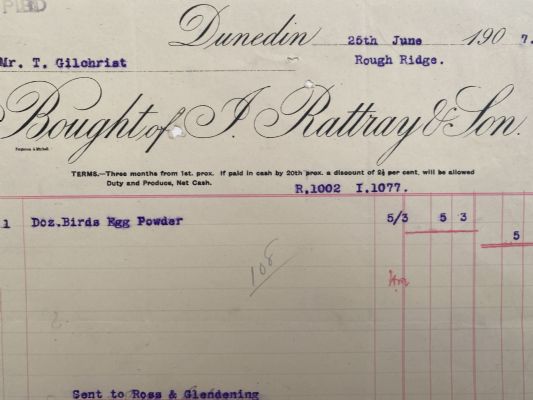 Dunedin 25th June 1907.
Mr. T. Gilchrist Rough Ridge.
Bought of J. Rattray & Son.
Fergusson & Mitchell
TERMS.—Three months from 1st. prox. If paid in cash by 20th prox. a discount of 2½ per cent. will be allowed
Duty and Produce, Net Cash.
R.1002 I.1077.
1 Doz.Birds Egg Powder 5/3 5 3
5
108
Sent to Ross & Glendening